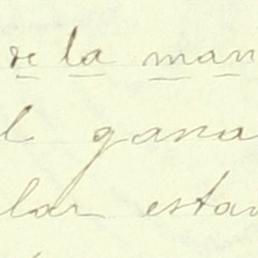 de la man
l gana
lar esta